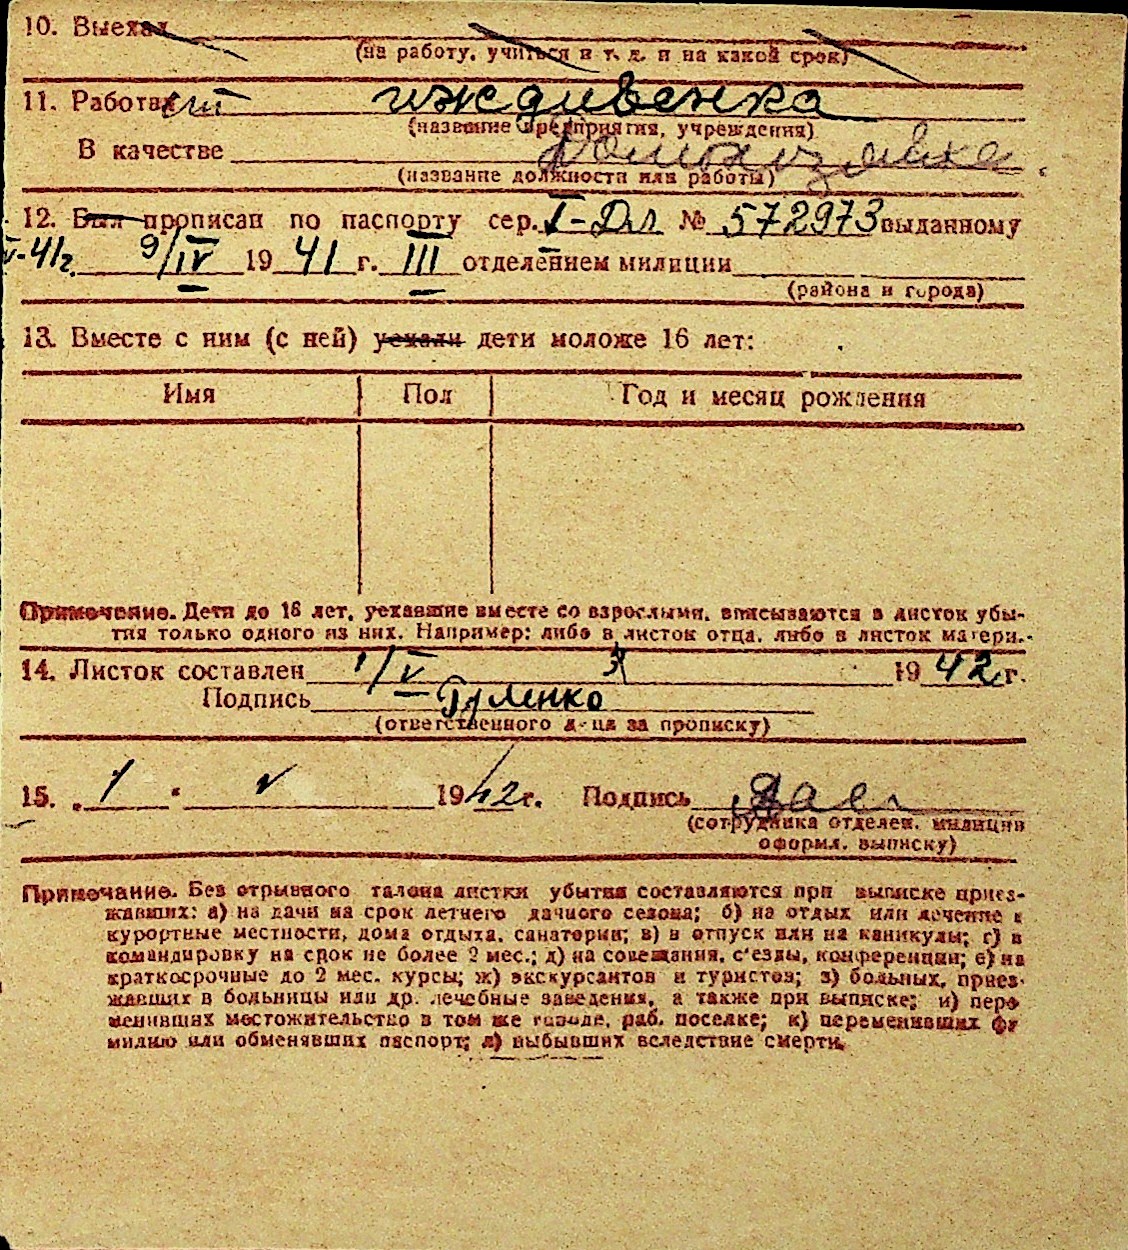 10. Выехал
(на работу, учиться и т. д. и на какой срок)
11. Работает иждивенка
(название предприятия, учреждения)
В качестве домохозяйка
(название должности или работы)
12. Был прописан по паспорту сер. I-Дл № 572973 выданному
V-41г. 9/IV 1941 г. III отделением милиции
(района и города)
13. Вместе с ним (с ней) уехали дети моложе 16 лет:
Имя Пол Год и месяц рождения
Примечание. Дети до 16 лет, уехавшие вместе со взрослыми, вписываются в листок убы-
тия только одного из них. Например: либо в листок отца, либо в листок матери.
14. Листок составлен 1/V 1942 г.
Подпись
(ответственного лица за прописку)
15. „1" V 1942 г. Подпись
(сотрудника отделен. милиции
оформл. выписку)
Примечание. Без отрывного талона листки убытия составляются при выписке приез-
жавших: а) на дачи на срок летнего дачного сезона; б) на отдых или лечение в
курортные местности, дома отдыха, санатории; в) в отпуск или на каникулы; г) в
командировку на срок не более 2 мес.; д) на совещания, с'езды, конференции; е) на
краткосрочные до 2 мес. курсы; ж) экскурсантов и туристов; з) больных, приез-
жавших в больницы или др. лечебные заведения, а также при выписке; и) пере
менивших местожительство в том же городе, раб. поселке; к) переменивших фа
милию или обменявших паспорт; л) выбывших вследствие смерти.